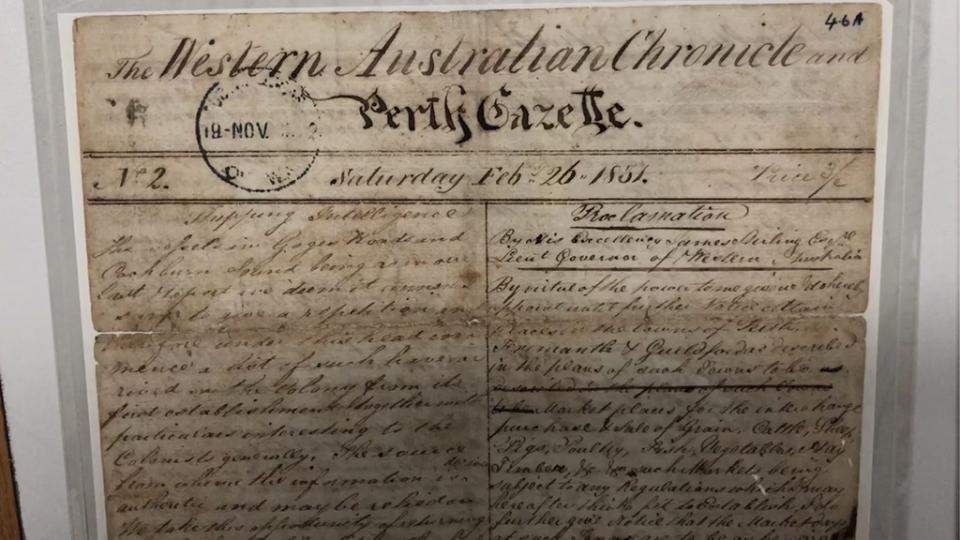 46A
The Western Australian Chronicle and
Perth Gazette.
19-NOV
No 2. Saturday Feby 26 1831. Price 3/
Shipping Intelligence
The vessels in Gages Roads and
Cockburn Sound being as in our
last Report we deem it unneces
sary to give a repetition
therefore under this head com
mence a list of such have ar
rived in the Colony from its
first establishment together with
particulars interesting to the
Colonists generally. The source
from whence this information is
authentic and may be relied on
We take this opportunity of returning
Proclamation
By His Excellency James Stirling Esqre
Lieut Governor of Western Australia
By virtue of the power to me given I do hereby
appoint until further Notice certain
places in the towns of Perth
Fremantle & Guildford as described
in the plans of such Towns to be
described in the plans of such Towns
to be Market places for the interchange
purchase & sale of Grain, Cattle, Sheep
Pigs, Poultry, Fish, Vegetables, Hay
Timber, &c &c such Markets being
subject to any Regulations which may
hereafter think fit to Establish, I do
further give Notice that the Market days
at such Towns are to be